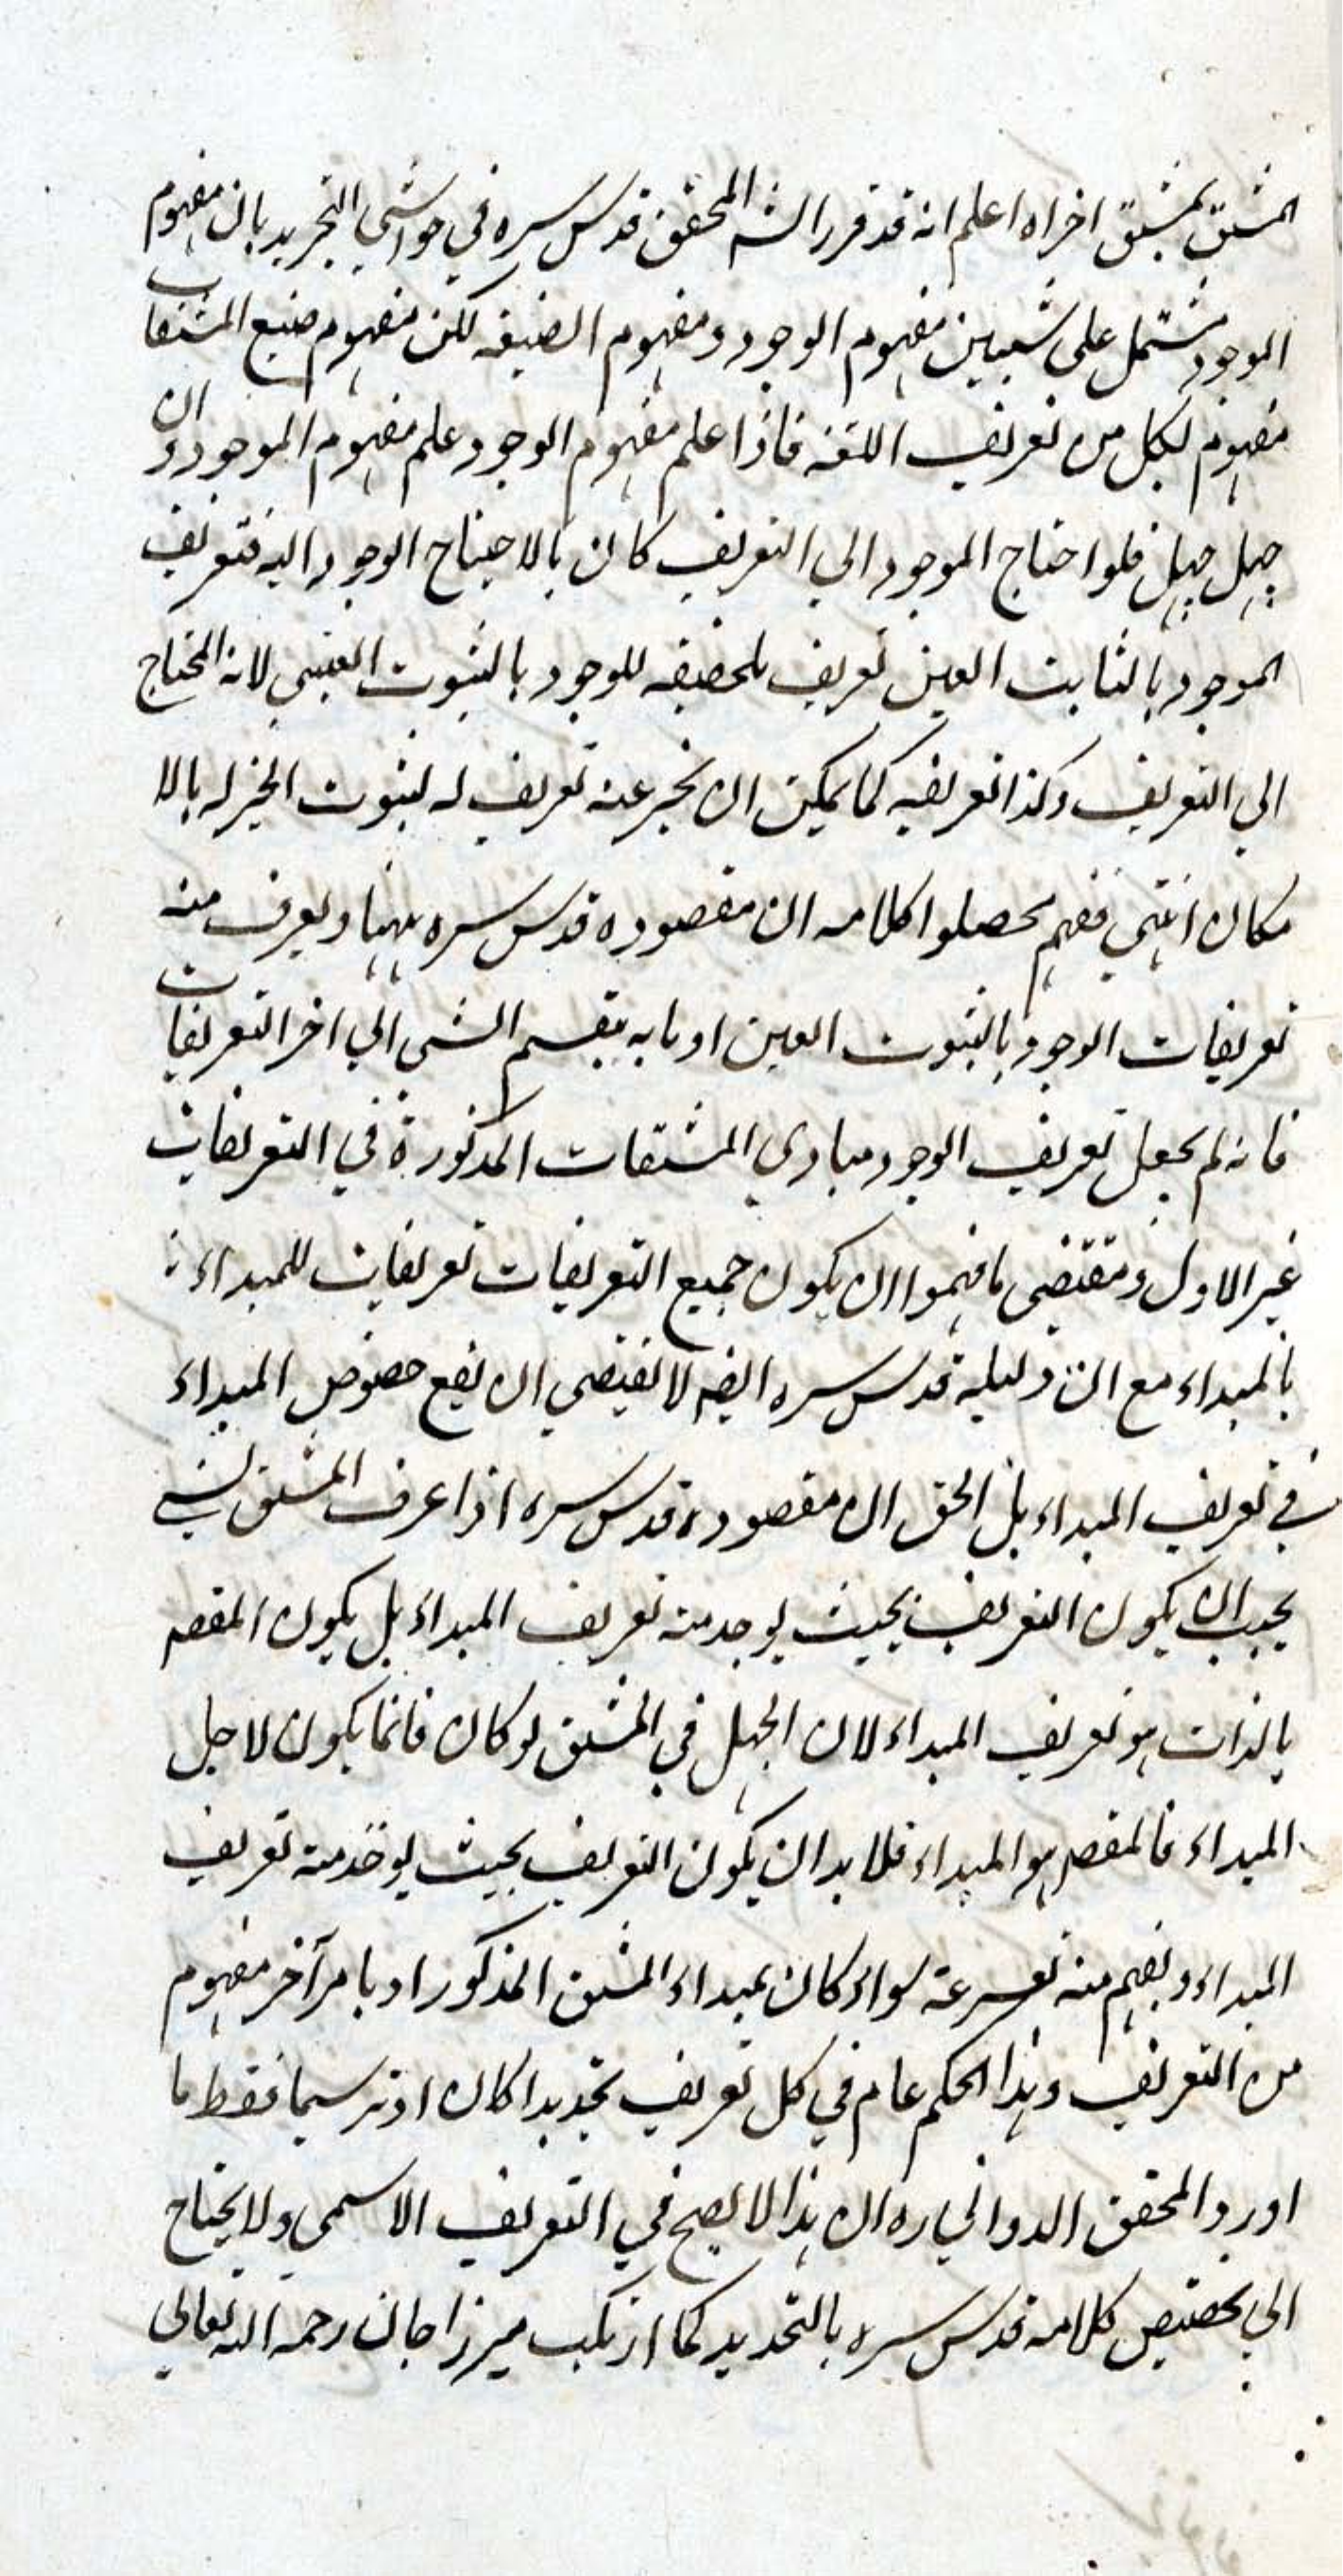 المشتق بمشتق اخراه اعلم انه قد قرر الشه المحقق قدس سره في حواشي التجريد بان مفهوم
الموجود مشتمل على شيئين مفهوم الوجود ومفهوم الصيغه لكن مفهوم صيغ المشتقات
مفهوم لكل من تعريف اللغة فاذا علم مفهوم الوجود علم مفهوم الموجود وان
جهل جهل فلو احتاج الموجود الي التعريف كان بالاحتياج الوجود اليه فتعريف
الموجود بالثابت العين تعريف بلحقيقه للوجود بالثبوت العيني لانه المحتاج
الي التعريف وكذا تعريفه كما يمكن ان يخبر عنه تعريف له لثبوت الخبر له بالا
مكان انتهي ففهم محصلوا كلامه ان مقصوده قدس سره ههنا و يعرف منه
تعريفات الوجود بالثبوت العين او ما به ينقسم الشي الي اخر التعريفات
فانه لم يجعل تعريف الوجود مبادي المشتقات المذكورة في التعريفات
غير الاول ومقتضي ما فهموا ان يكون جميع التعريفات تعريفات للمبداء
بالمبداء مع ان دليله قدس سره ايضه لا يقتضي ان يقع خصوص المبداء
في تعريف المبداء بل الحق ان مقصوده قدس سره اذا عرف المشتق بشي
يجب ان يكون التعريف بحيث يوجد منه تعريف المبداء بل يكون المقصه
بالذات هو تعريف المبداء لان الجهل في المشتق لو كان فانما يكون لاجل
المبداء فالمقصه هو المبداء فلابد ان يكون التعريف بحيث يوخذ منه تعريف
المبداء ويفهم منه بسرعة سواء كان بمبداء المشتق المذكور او بامر آخر مفهوم
من التعريف وهذا الحكم عام في كل تعريف تحديدا كان او ترسيما فقط ما
اورد المحقق الدواني ره ان هذا لا يصح في التعريف الاسمي ولا يحتاج
الي تخصيص كلامه قدس سره بالتحديد كما ارتكب ميرزا جان رحمه الله تعالي